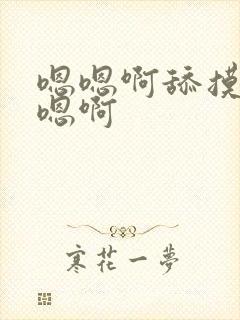 嗯嗯啊舔摸
嗯啊
寒花一梦